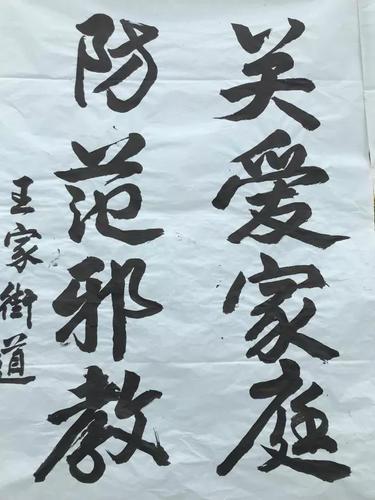 关爱家庭
防范邪教
王家街道